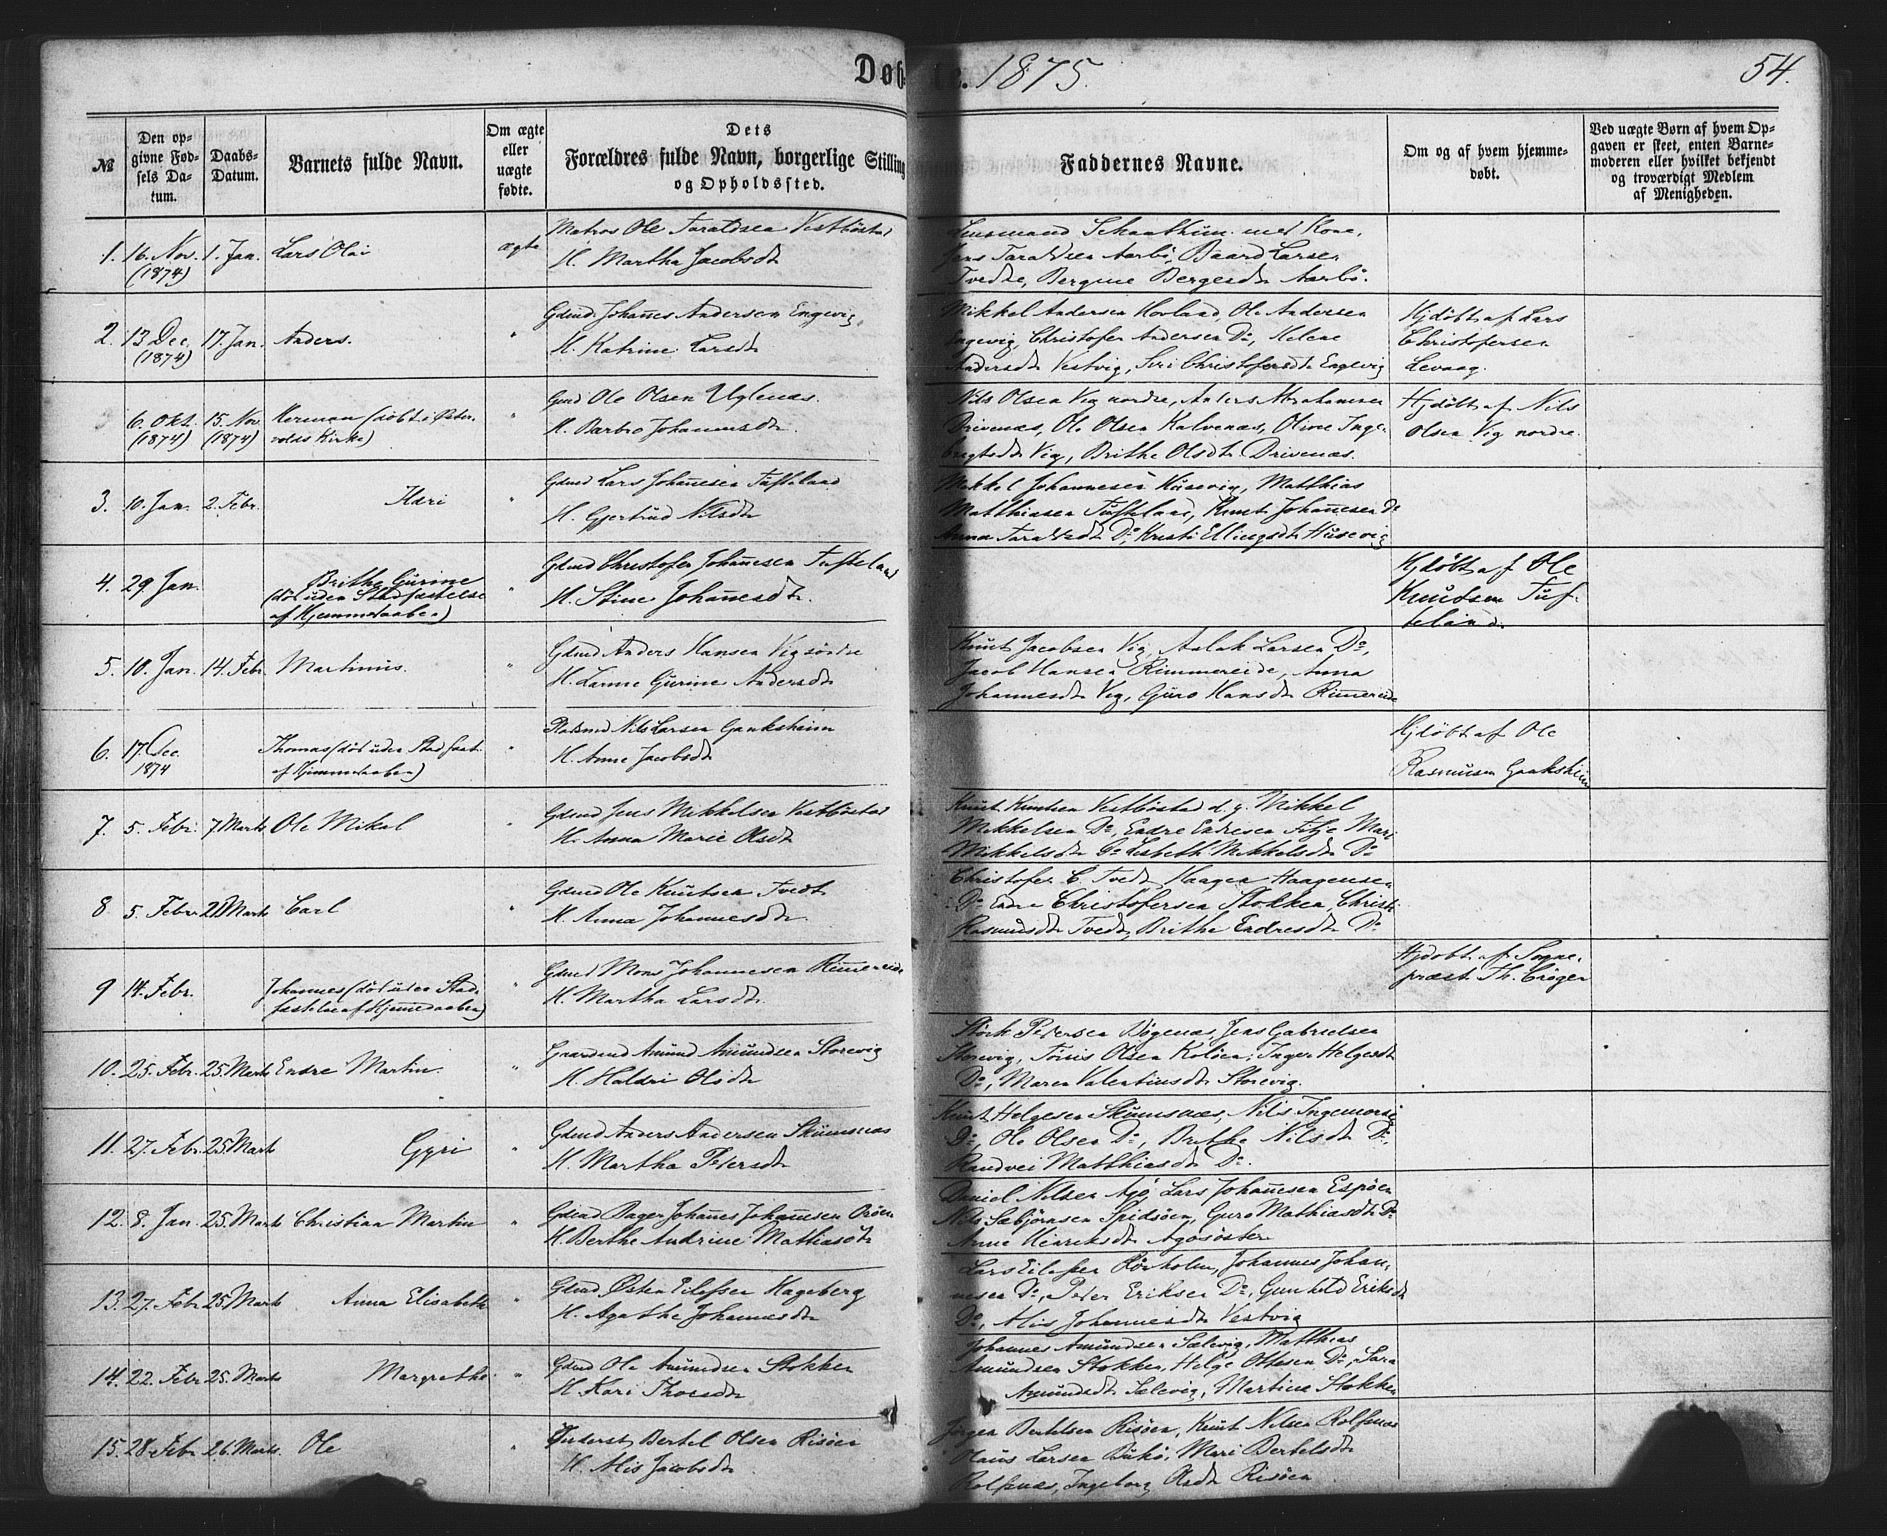 Døb
te. 1875.
54.
№
Den op-
givne Fød-
sels Da-
tum.
Daabs-
Datum.
Barnets fulde Navn.
Om ægte
eller
uægte
fødte.
Dets
Forældres fulde Navn, borgerlige Stilling
og Opholdssted.
Faddernes Navne.
Om og af hvem hjemme-
døbt.
Ved uægte Børn af hvem Op-
gaven er skeet, enten Barne-
moderen eller hvilket bekjendt
og troværdigt Medlem
af Menigheden.
1. 16. Nov. (1874) 1. Jan. Lars Olai ægte
Matros Ole Taraldsen Vestbøstad
H. Martha Jacobsdt
Lensmand Schaathun med Kone,
Jens Taraldsen Aarbø, Baard Larsen
Tvedte, Bergine Bergesdt Aarbø.
2. 13 Dec. (1874) 17. Jan. Anders. "
Gdmd Johannes Andersen Engevig
H. Katrine Larsdt
Mikkel Andersen Hovland, Ole Andersen
Engevig, Christofer Andersen Do, Helene
Andersdt Vestvig, Siri Christofersdt Engevig
Hjdøbt af Lars
Christofersen
Levaag.
6. Okt. (1874) 15. Nov. (1874) Herman (døbt i Øster-
volds Kirke) "
Gmd Ole Olsen Uglenæs.
H. Barbro Johannesdt.
Nils Olsen Vig nordre, Anders Abrahamsen
Drivenæs, Ole Olsen Kalvenæs, Oline Inge-
brigtsdt Vig, Brithe Olsdt Drivenæs.
Hjdøbt af Nils
Olsen Vig nordre.
3. 10. Jan. 2. Febr. Kari "
Gdmd Lars Johannesen Tufteland
H. Gjertrud Nilsdt
Mikkel Johannesen Husevig, Matthias
Matthiasen Tufteland, Knut Johannesen Do
Anna Taraldsdt Do, Kristi Ellingsdt Husevig
4. 29. Jan. Brithe Gurine
(død uden Stadfæstelse
af Hjemmedaaben) "
Gdmd Christofer Johannesen Tufteland
H. Stine Johannesdt.
Hjdøbt af Ole
Knudsen Tuf-
teland.
5. 10. Jan. 14. Febr. Martinus. "
Gdmd Anders Hansen Vig søndre
H. Lanne Gurine Andersdt
Knut Jacobsen Vig, Aslak Larsen Do,
Jacob Hansen Rimmereide, Anna
Johannesdt Vig, Guro Hansdt Rimereide
6. 17. Dec. 1874 Thomas (død uden Stadfæst.
af Hjemmedaaben) "
Pladsmd Nils Larsen Gauksheim
H. Anne Jacobsdt
Hjdøbt af Ole
Rasmusen Gauksheim
7. 5. Febr. 7 Marts Ole Mikal "
Gdmd Jens Mikkelsen Vestbøstad
H. Anna Marie Olsdt
Knut Knutsen Vestbøstad d. y. Mikkel
Mikkelsen Do, Endre Endresen Fitje Mari
Mikkelsdt Do Lisbeth Mikkelsdt Do
8 5. Febr. 21 Marts Carl "
Gdmd Ole Knutsen Tvedt
H. Anna Johannesdt
Christofer C. Tvedt, Haagen Haagensen
Do Endre Christofersen Stokken, Christi
Rasmusdt Tvedt, Brithe Endresdt Do
9 14. Febr. Johannes (død uden Stad-
fæstelse af Hjemmedaaben) "
Gdmd Mons Johannesen Rimereide
H. Martha Larsdt.
Hjdøbt af Sogne-
præst Th. Crøger
10. 25. Febr. 25. Marts Endre Martin. "
Gaardmd Amund Amundsen Storevig
H. Haldri Olsdt
Størk Petersen Bøgenæs, Jens Gabrielsen
Storevig, Tøris Olsen Koløen, Inger Helgesdt
Do, Maren Valentinsdt Storevig.
11. 27. Febr. 25. Marts Gyri "
Gdmd Anders Andersen Skumsnæs
H. Martha Petersdt
Knut Helgesen Skumsnæs, Nils Ingemorsen
Do, Ole Olsen Do, Brithe Nilsdt Do,
Randvei Matthiasdt Do.
12. 8. Jan. 25. Marts Christian Martin "
Johannes Johannesen
H. Berthe Andrine Mathiasdt
Daniel Nilsen Agø, Lars Johannesen Espøen
Nils Sæbjørnsen Spidsøen, Guro Mathiasdt Do
Anne Henriksdt Agosøster
13. 27. Febr. 25. Marts Anna Elisabeth "
Gdmd Østen Eilefsen Hageberg
H. Agathe Johannesdt
Lars Eilefsen Rørholm, Johannes Johan-
nesen Do, Peter Eriksen Do, Gunhild Eriksdt
Do, Alis Johannesdt Vestvig
14. 22. Febr. 25. Marts Margrethe "
Gdmd Ole Amundsen Stokken
H. Kari Thorsdt
Johannes Amundsen Sælevig, Matthias
Amundsen Stokken, Helge Ottesen Do, Sara
Amundsdt Sælevig, Martine Stokken
15. 28. Febr. 26. Marts. Ole "
Inderst Bertel Olsen Risøen
H. Alis Jacobsdt.
Jørgen Bertelsen Risøen, Knut Nilsen Rolfsnæs
Olaus Larsen Bukø, Mari Bertelsdt
Rolfsnæs, Ingeborg Olsdt Risøen